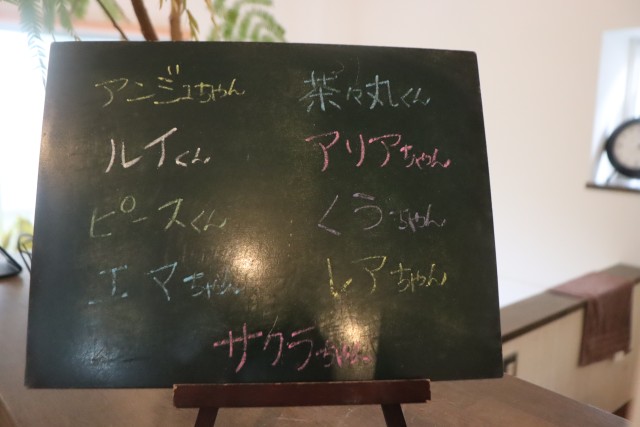 アンジュちゃん
茶々丸くん
ルイくん
アリアちゃん
ピースくん
くうちゃん
エマちゃん
レアちゃん
サクラちゃん